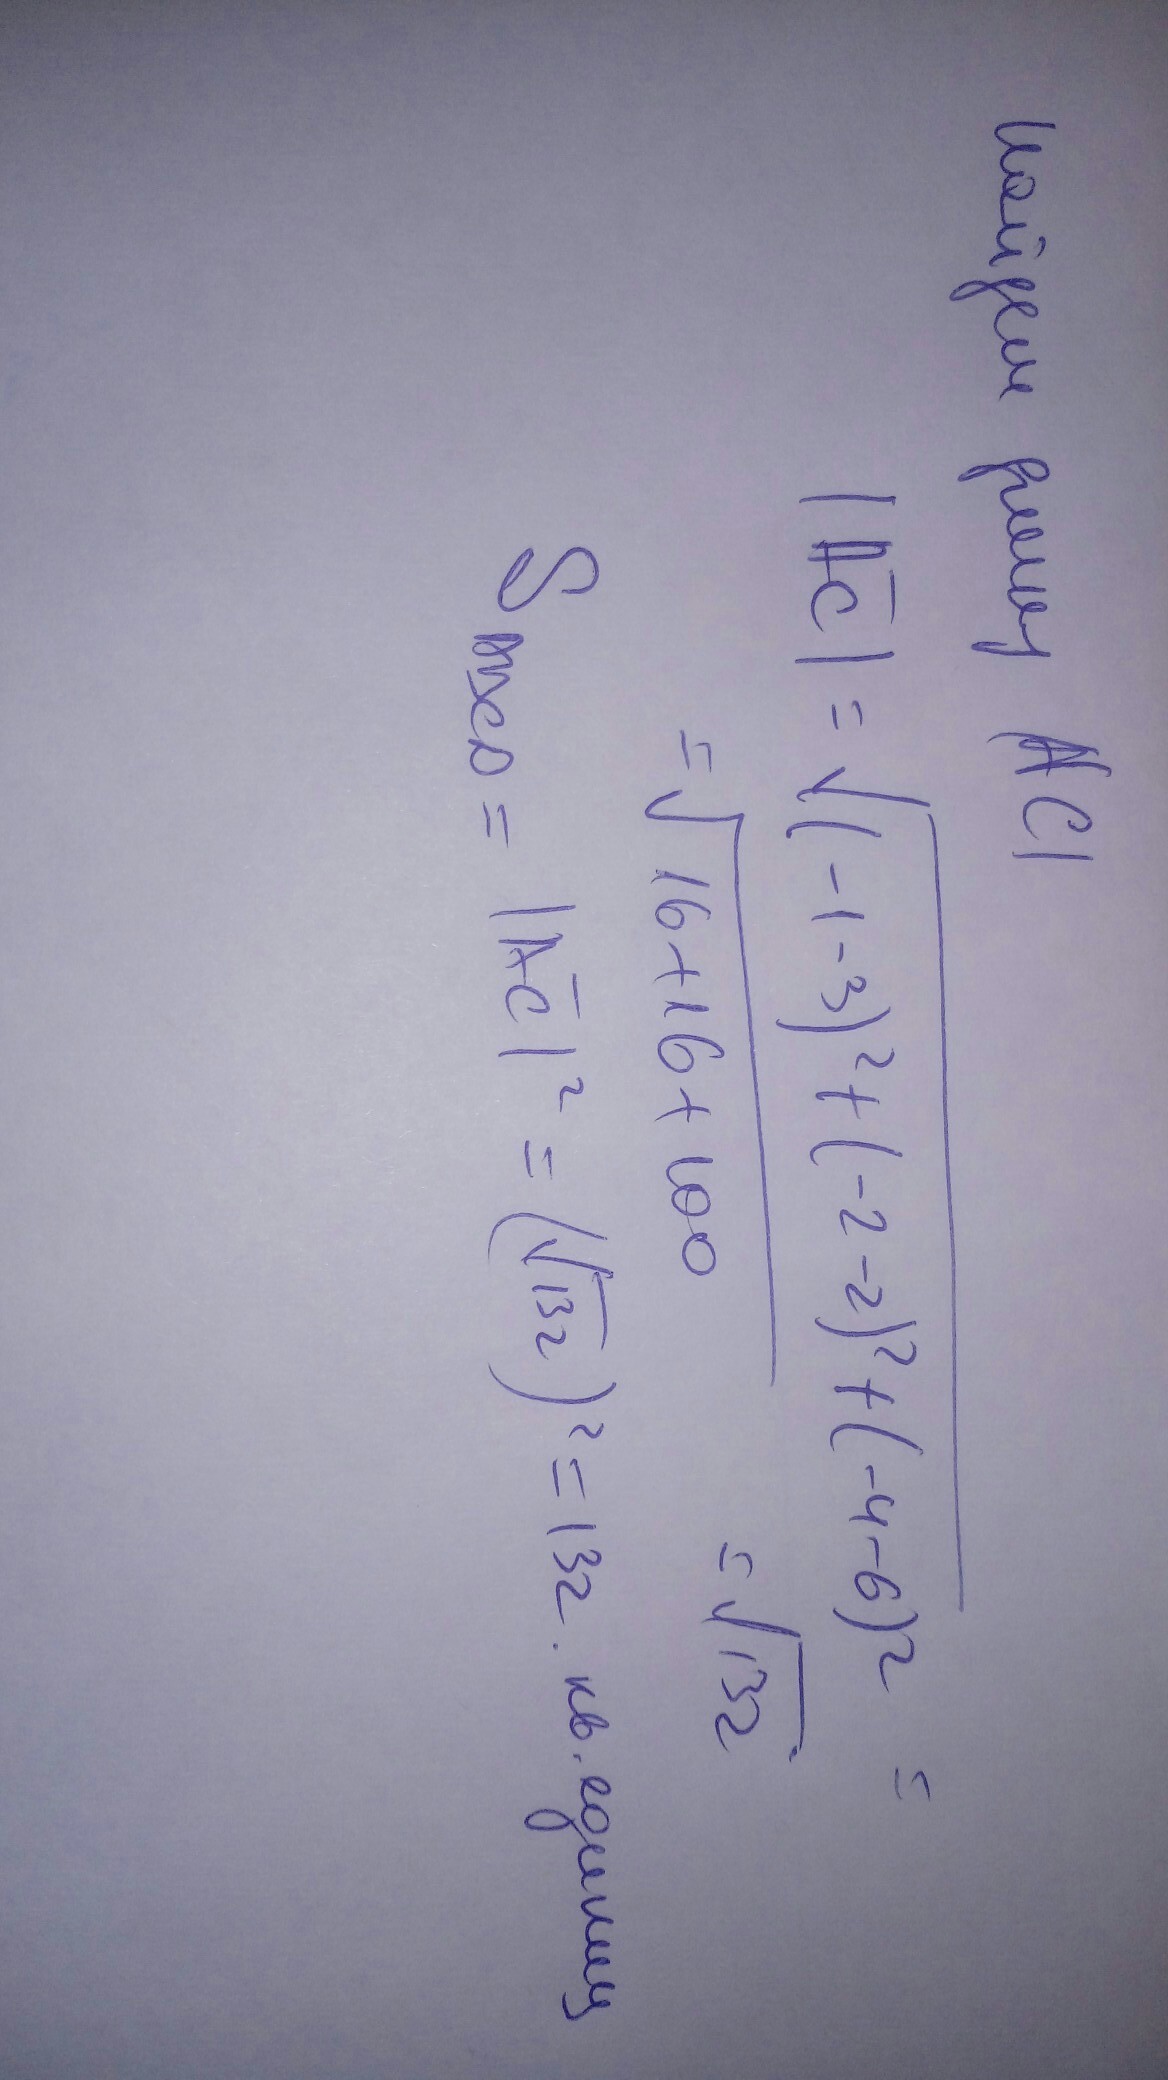 Найдем длину AC
|AC| = √(-1-3)²+(-2-2)²+(-4-6)² =
= √16+16+100 = √132.
S ABCD = |AC|² = (√132)² = 132. кв. единиц